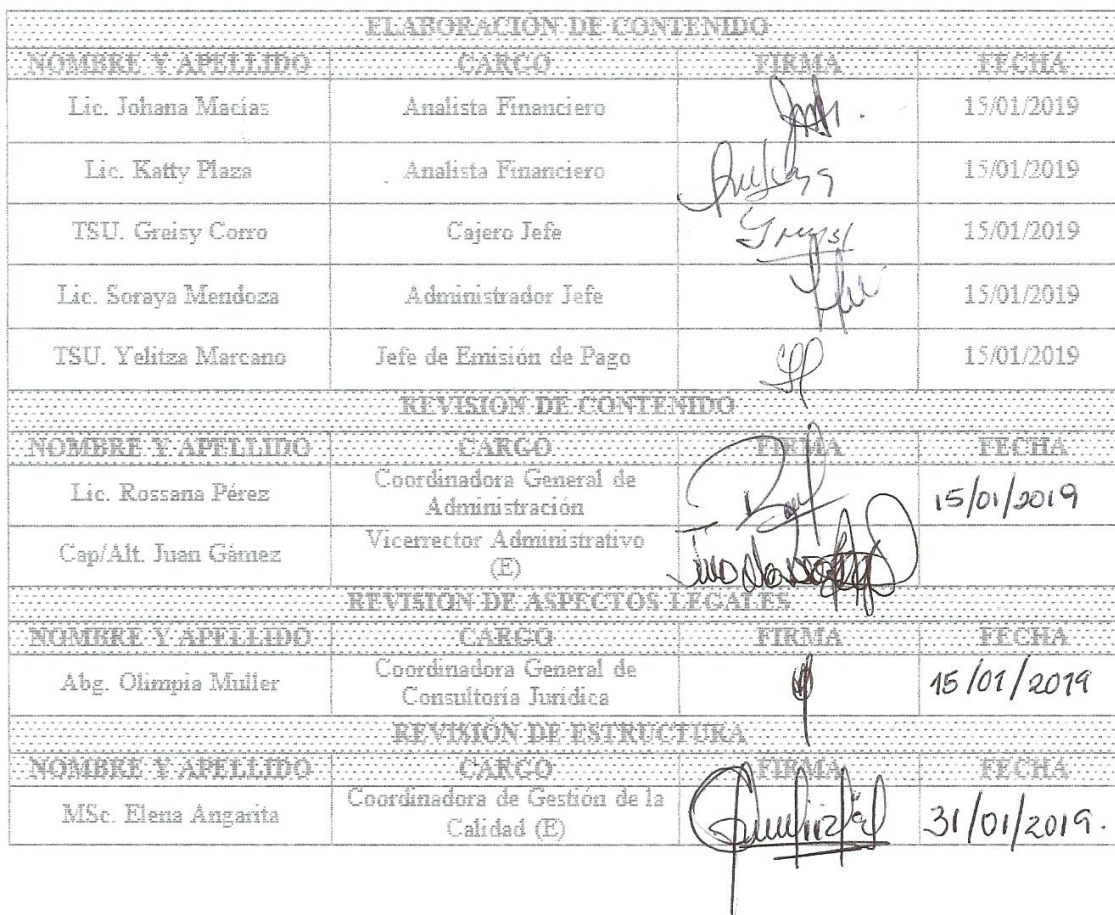 ELABORACIÓN DE CONTENIDO
NOMBRE Y APELLIDO CARGO FIRMA FECHA
Lic. Johana Macías Analista Financiero 15/01/2019
Lic. Katty Plaza Analista Financiero 15/01/2019
TSU. Greisy Corro Cajero Jefe 15/01/2019
Lic. Soraya Mendoza Administrador Jefe 15/01/2019
TSU. Yelitza Marcano Jefe de Emisión de Pago 15/01/2019
REVISION DE CONTENIDO
NOMBRE Y APELLIDO CARGO FIRMA FECHA
Lic. Rossana Pérez Coordinadora General de
Administración 15/01/2019
Cap/Alt. Juan Gámez Vicerrector Administrativo
(E)
REVISION DE ASPECTOS LEGALES
NOMBRE Y APELLIDO CARGO FIRMA FECHA
Abg. Olimpia Muller Coordinadora General de
Consultoría Jurídica 15/01/2019
REVISIÓN DE ESTRUCTURA
NOMBRE Y APELLIDO CARGO FIRMA FECHA
MSc. Elena Angarita Coordinadora de Gestión de la
Calidad (E) 31/01/2019.